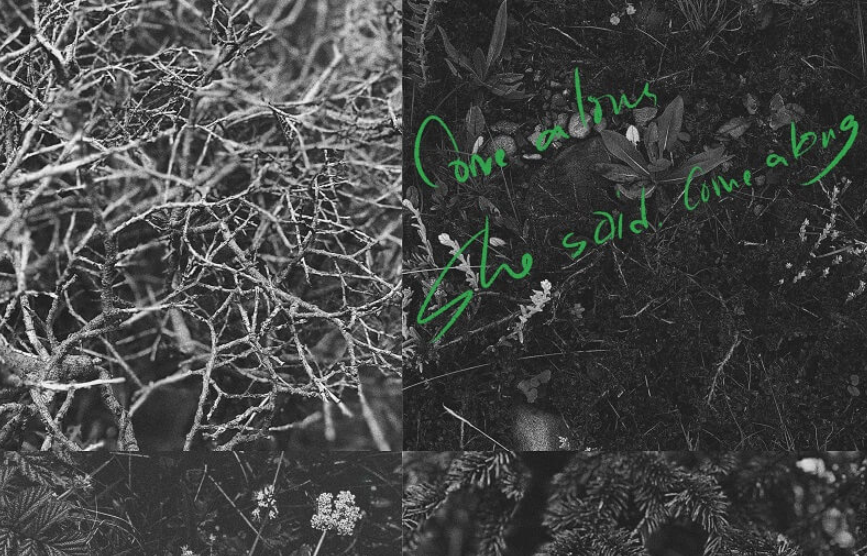 Come along
She said. Come along